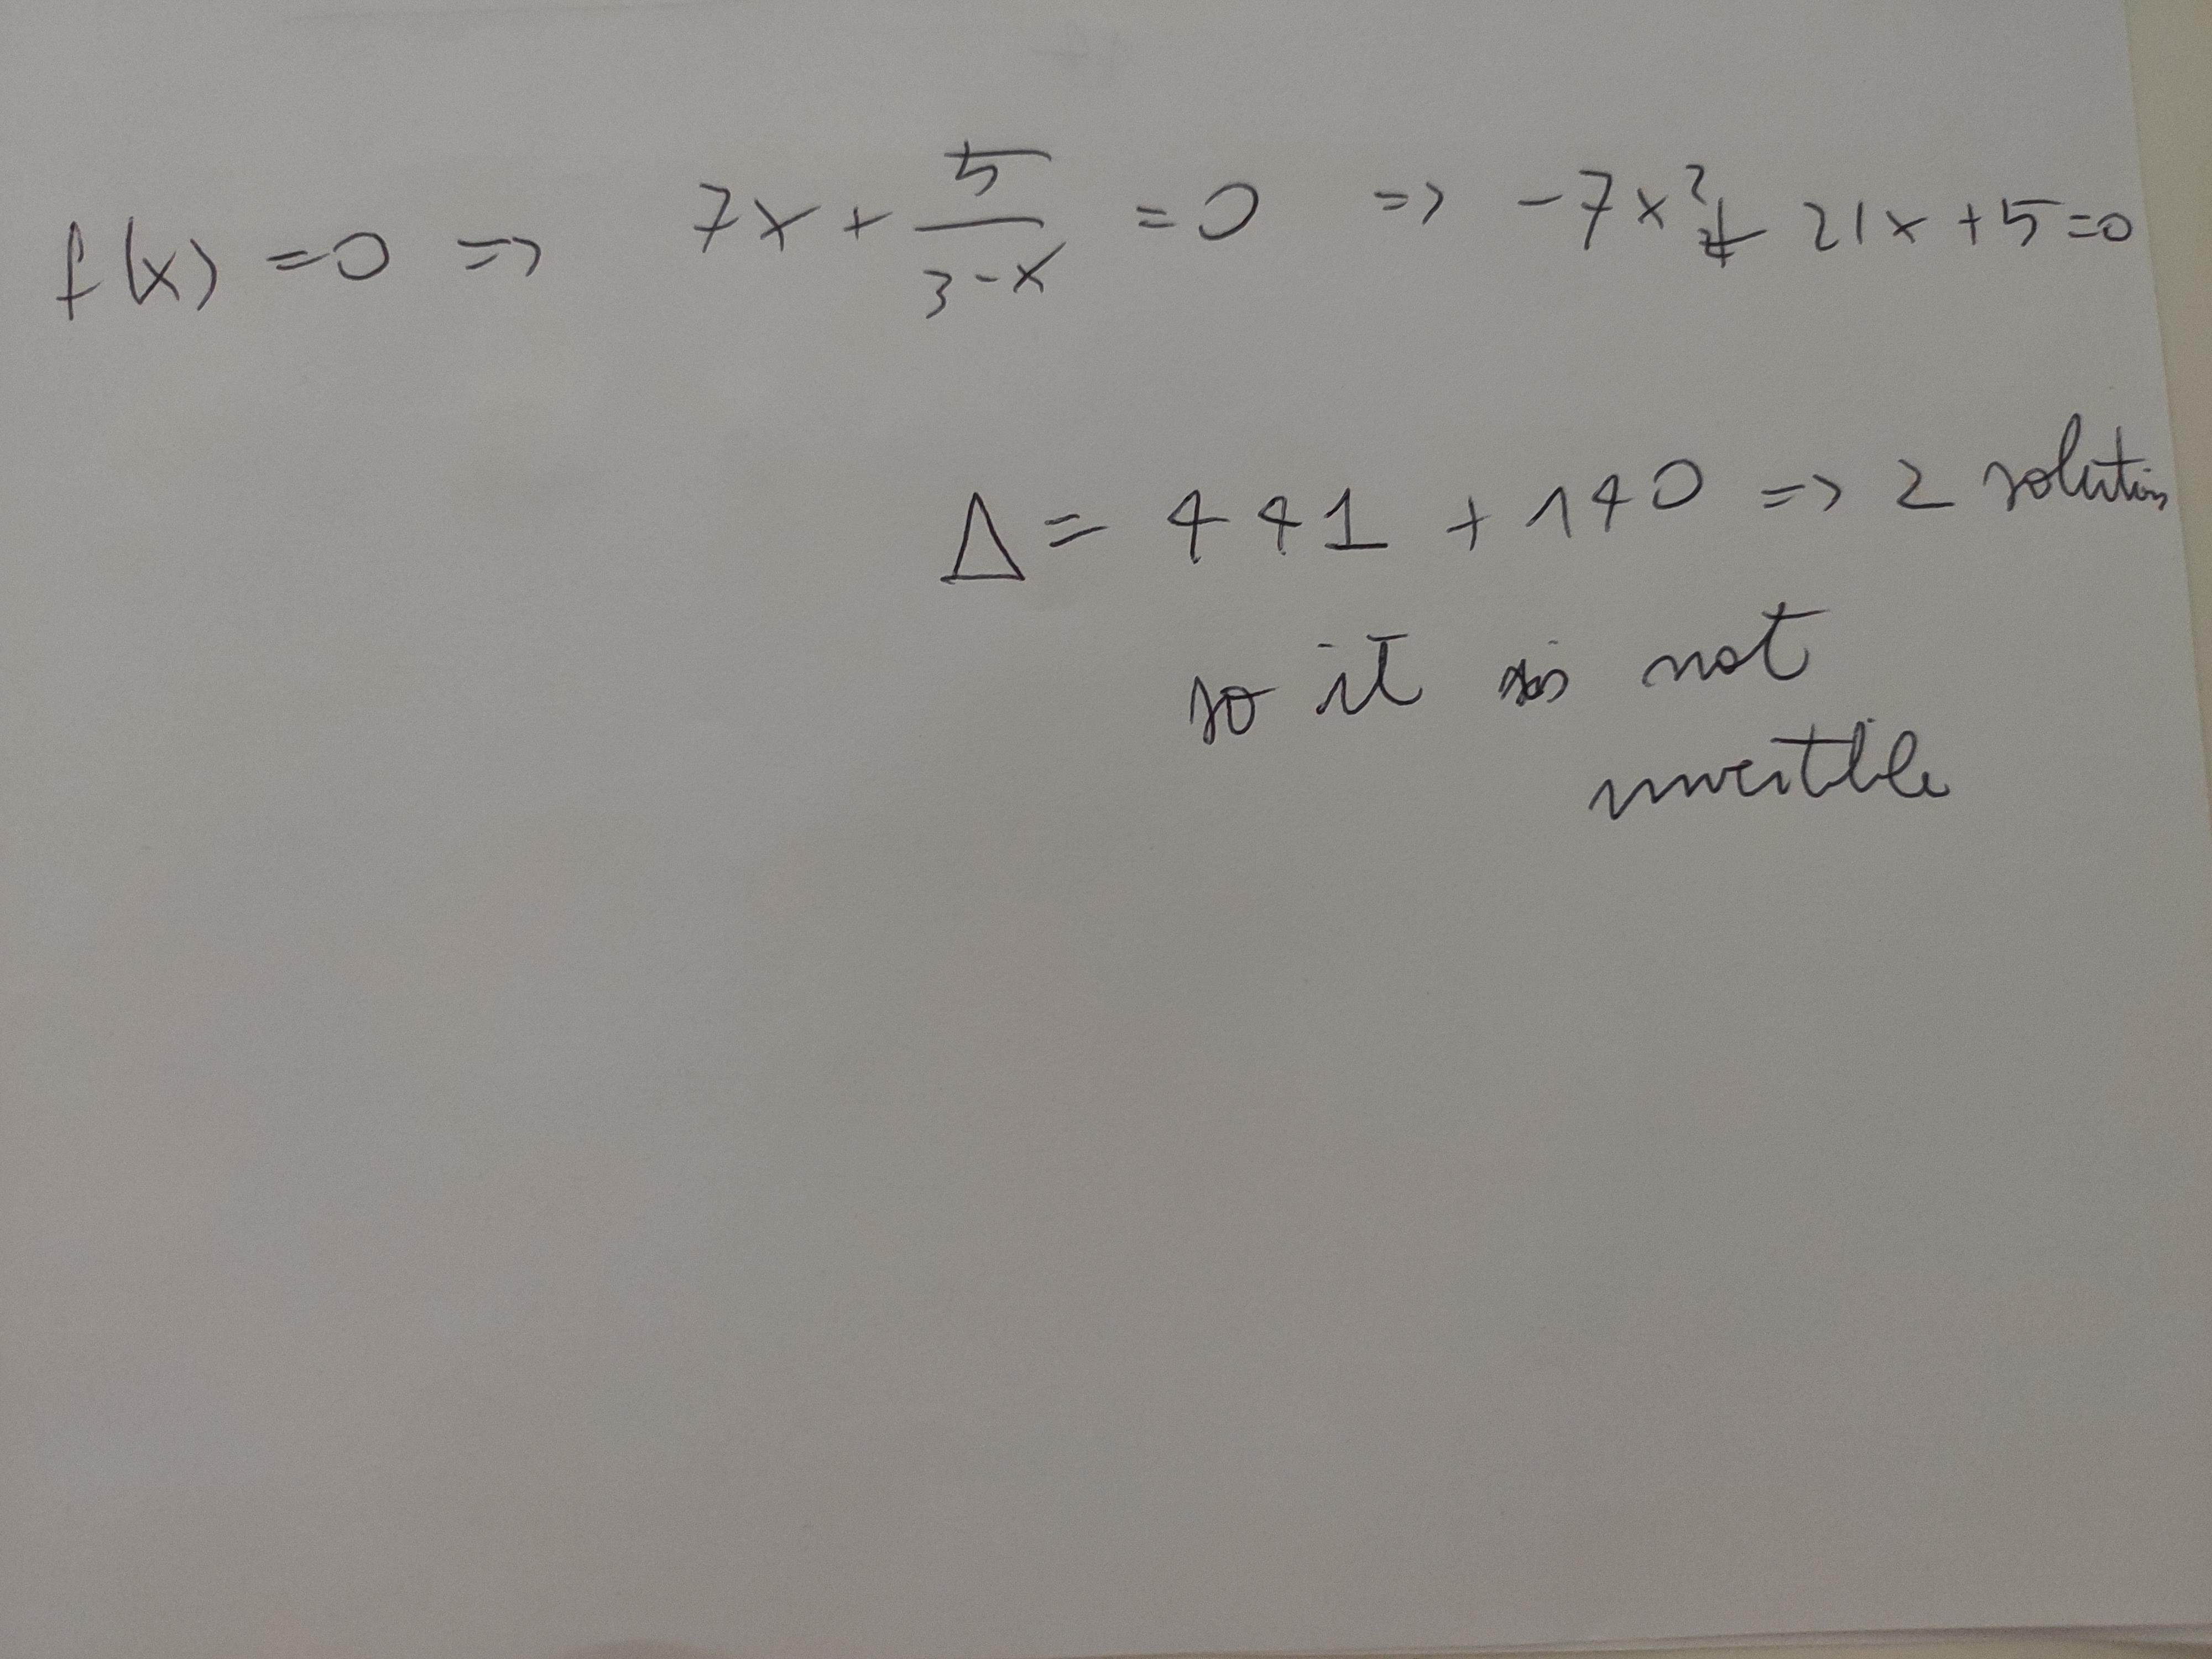 f(x) = 0 => 7x + 5/(3-x) = 0 => -7x² + 21x + 5 = 0
Δ = 441 + 140 => 2 solutions
so it is not
invertible